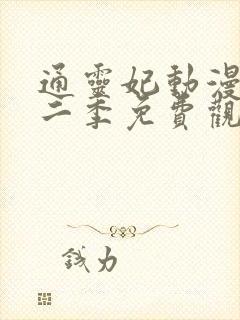 通靈妃動漫
二季免費觀
錢力